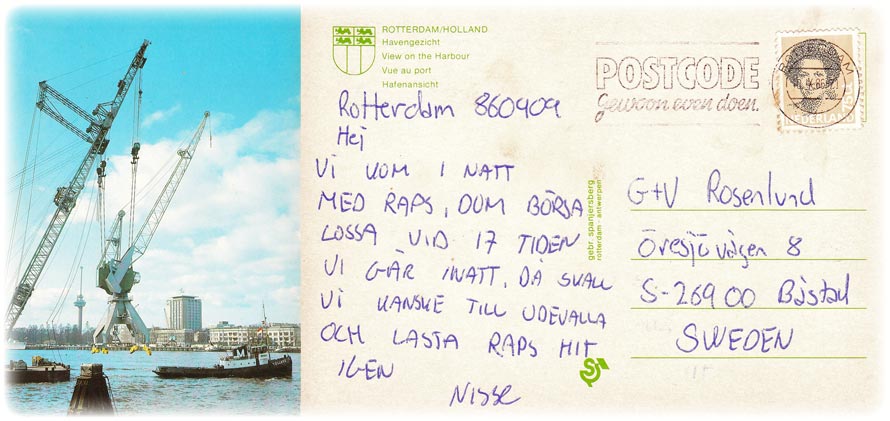 ROTTERDAM/HOLLAND
Havengezicht
View on the Harbour
Vue au port
Hafenansicht
POSTCODE
Gewoon even doen.
ROTTERDAM
NEDERLAND
Rotterdam 860909
Hej
VI KOM I NATT
MED RAPS, DOM BÖRJA
LOSSA VID 17 TIDEN
VI GÅR INATT, DÅ SKALL
VI KANSKE TILL UDEVALLA
OCH LASTA RAPS HIT
IGEN
Nisse
gebr. spanjersberg
rotterdam - antwerpen
G+V Rosenlund
Öresjövägen 8
S-269 00 Båstad
SWEDEN